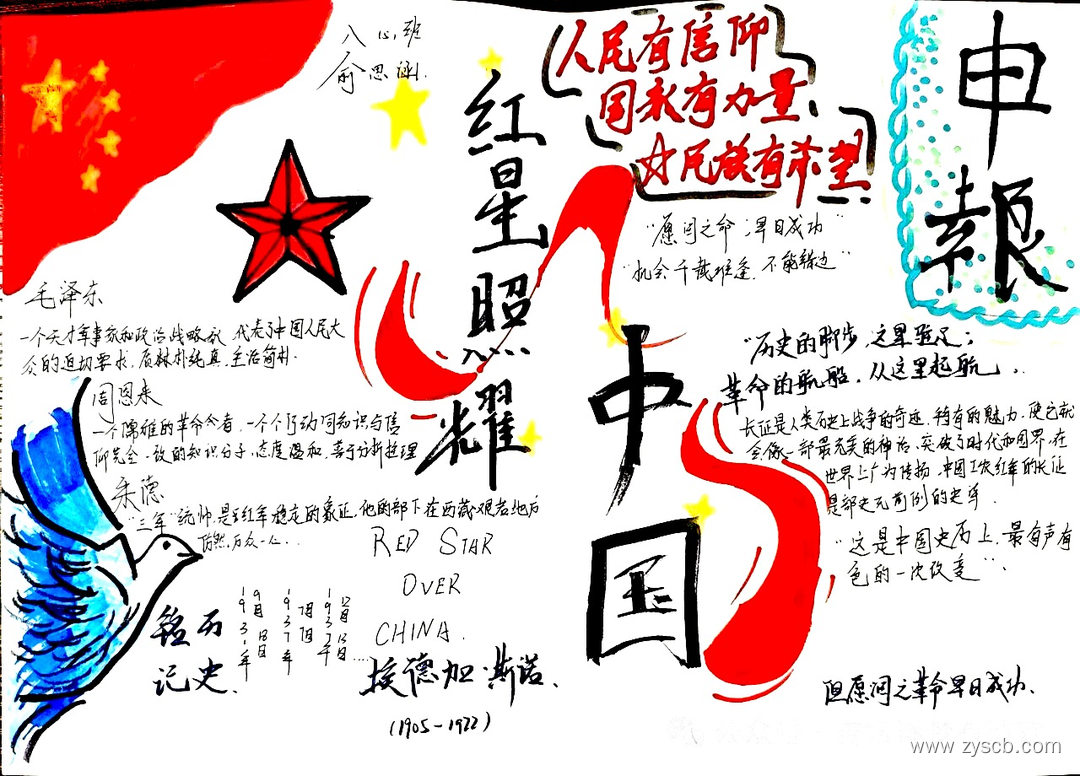 八(6)班
俞思涵.
人民有信仰
国家有力量
民族有希望
申
報
红星照耀
中国
"愿闰之命;早日成功"
"机会千载难逢.不能错过"
毛泽东
一个天才军事家和政治战略家.代表了中国人民大
众的迫切要求.质朴纯真.生活简朴.
周恩来
一个儒雅的革命
知识与信
仰完全一致的知识分子.态度温和.善于分析推理
朱德
"三军"统帅.是红军稳定的象征.他的部下在西藏艰苦地方
仍然万众一心...
"历史的脚步.这里驻足;
革命的航船.从这里起航".
长征是人类历史上战争的奇迹.特有的魅力.使它就
会像一部最完美的神话.突破了时代和国界.在
世界上广为传扬.中国工农红军的长征
是部史无前例的史诗
"这是中国史历上.最有声有
色的一次改变".
RED STAR
OVER
CHINA.
铭记历史.
1931年9月18日
1937年7月7日
1937年12月13日...
埃德加·斯诺.
(1905-1972)
但愿闰之革命早日成功.
www.zyscb.com